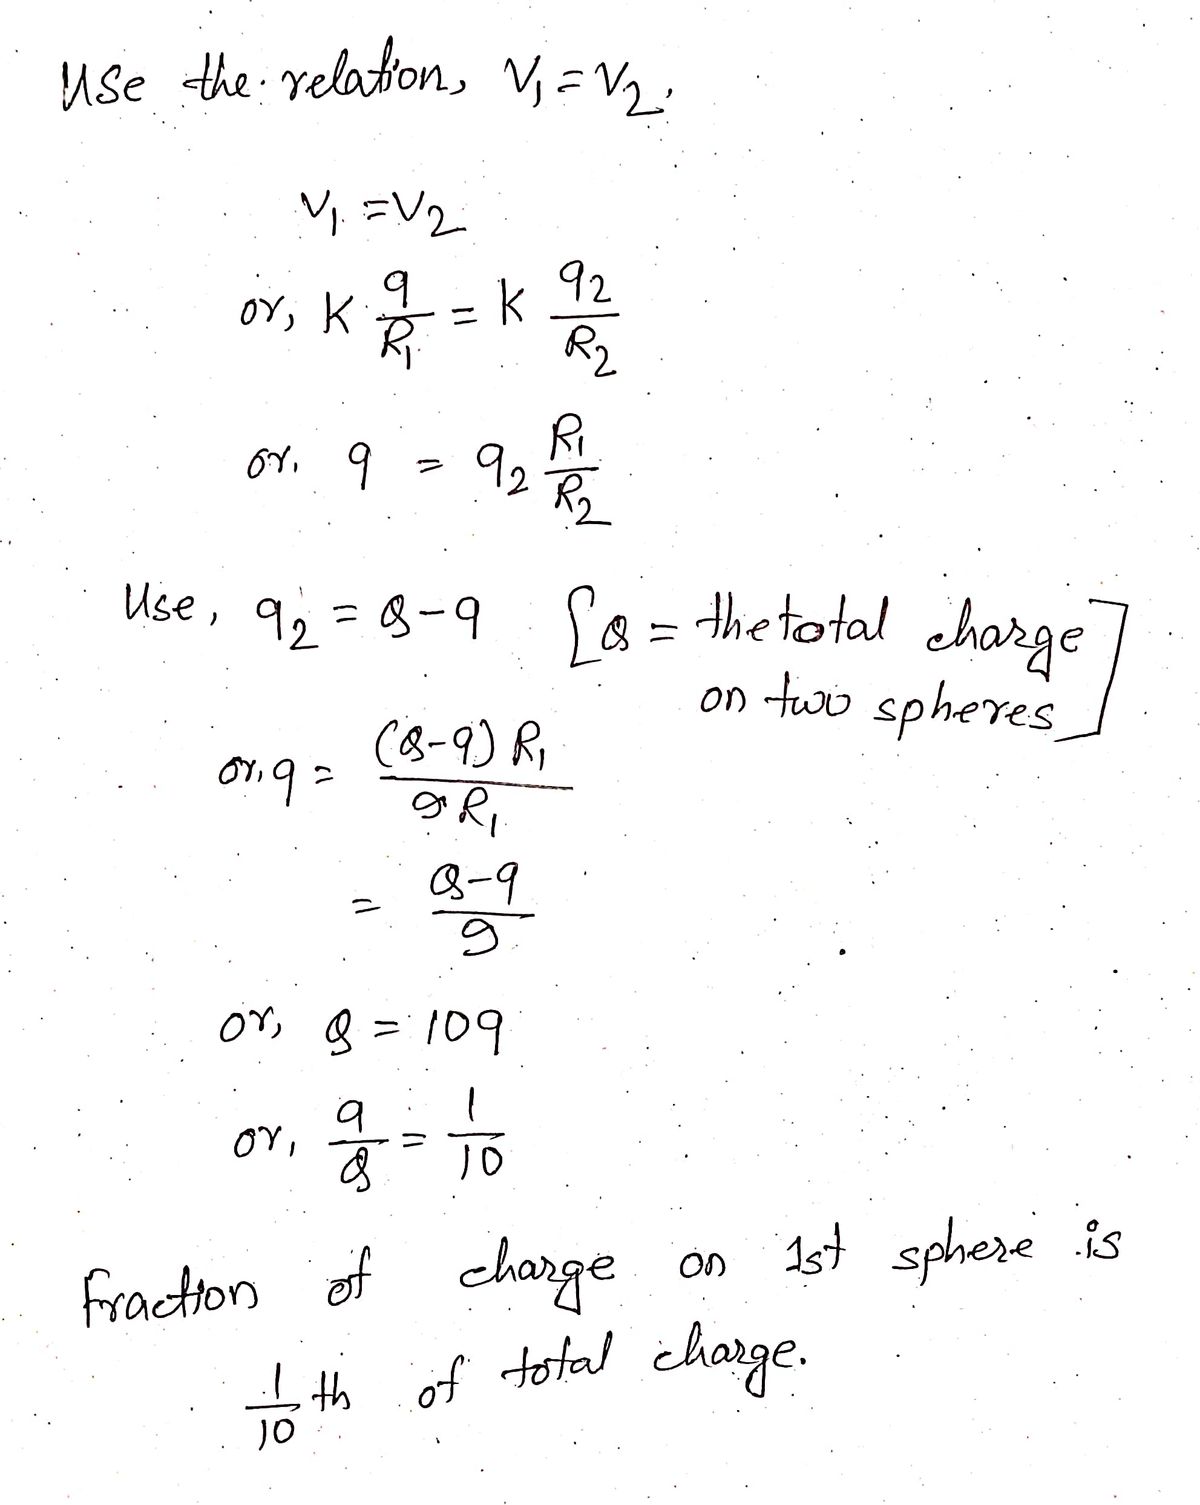 Use the relation, V₁ = V₂.
V₁ = V₂
or, K q/R₁ = K q₂/R₂
or, q = q₂ R₁/R₂
Use, q₂ = Q-q [Q = the total charge
on two spheres]
or, q = (Q-q) R₁/9R₁
= Q-q/9
or, Q = 10q
or, q/Q = 1/10
Fraction of charge on 1st sphere is
1/10 th of total charge.